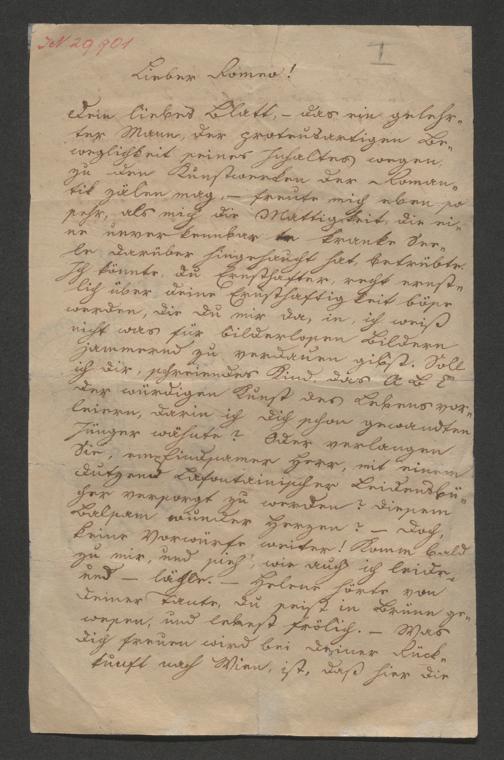 IN 29901
I
Lieber Romeo!
Dein liebes Blatt, – das ein gelehr-
ter Mann, der proteusartigen Be-
weglichkeit seines Inhaltes wegen,
zu den Kunstwerken der Roman-
tik zälen mag, – freute mich eben so
sehr, als mich die Mattigkeit, die ei-
ne unverkennbar kranke See-
le darüber hingehaucht hat, betrübte.
Ich könnte, du Ernsthafter, recht ernst-
lich über deine Ernsthaftigkeit böse
werden, die du mir da, in, ich weiß
nicht was für bilderlosen Bildern
jammernd zu verdauen gibst. Soll
ich dir, schreiendes Kind, das A B C
der würdigen Kunst des Lebens vor-
leiern, darin ich dich schon gewandten
Jünger wähnte? Oder verlangen
Sie, empfindsamer Herr, mit einem
Dutzend Lafontainischer Leidensbü-
cher versorgt zu werden? diesem
Balsam wunder Herzen? – Doch,
keine Vorwürfe weiter! Komm bald
zu mir, und sieh', wie auch ich leide,
und – lächle. – Helene hörte von
deiner Tante, du seist in Brünn ge-
wesen, und lebest frölich. – Was
dich freuen wird bei deiner Rück-
kunft nach Wien, ist, daß hier die